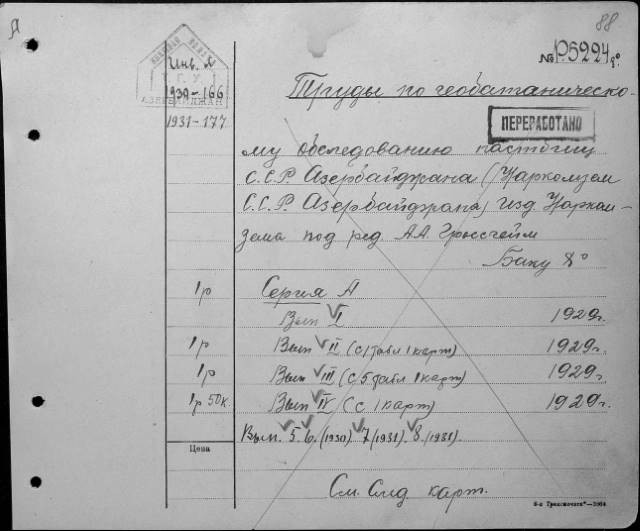 88
№ Р5224 8°
Инв. №
Т.Г.У.
АЗЕРБАЙДЖАН
1930-166
1931-177
Труды по геобатаническо-
ПЕРЕРАБОТАНО
му обследованию пастбищ
С.С.Р. Азербайджана (Наркомзем
С.С.Р. Азербайджана) изд. Нарком-
зема под ред. А.А. Гроссгейм
Баку 8°
1р Серия А
Вып I 1929г.
1р Вып II (с 1 табл 1 карт) 1929г.
1р Вып III (с 5 табл 1 карт) 1929г.
1р 50к Вып IV (с 1 карт) 1929г.
Вып. 5. 6. (1930) 7 (1931). 8. (1931).
Цена
См. След карт.